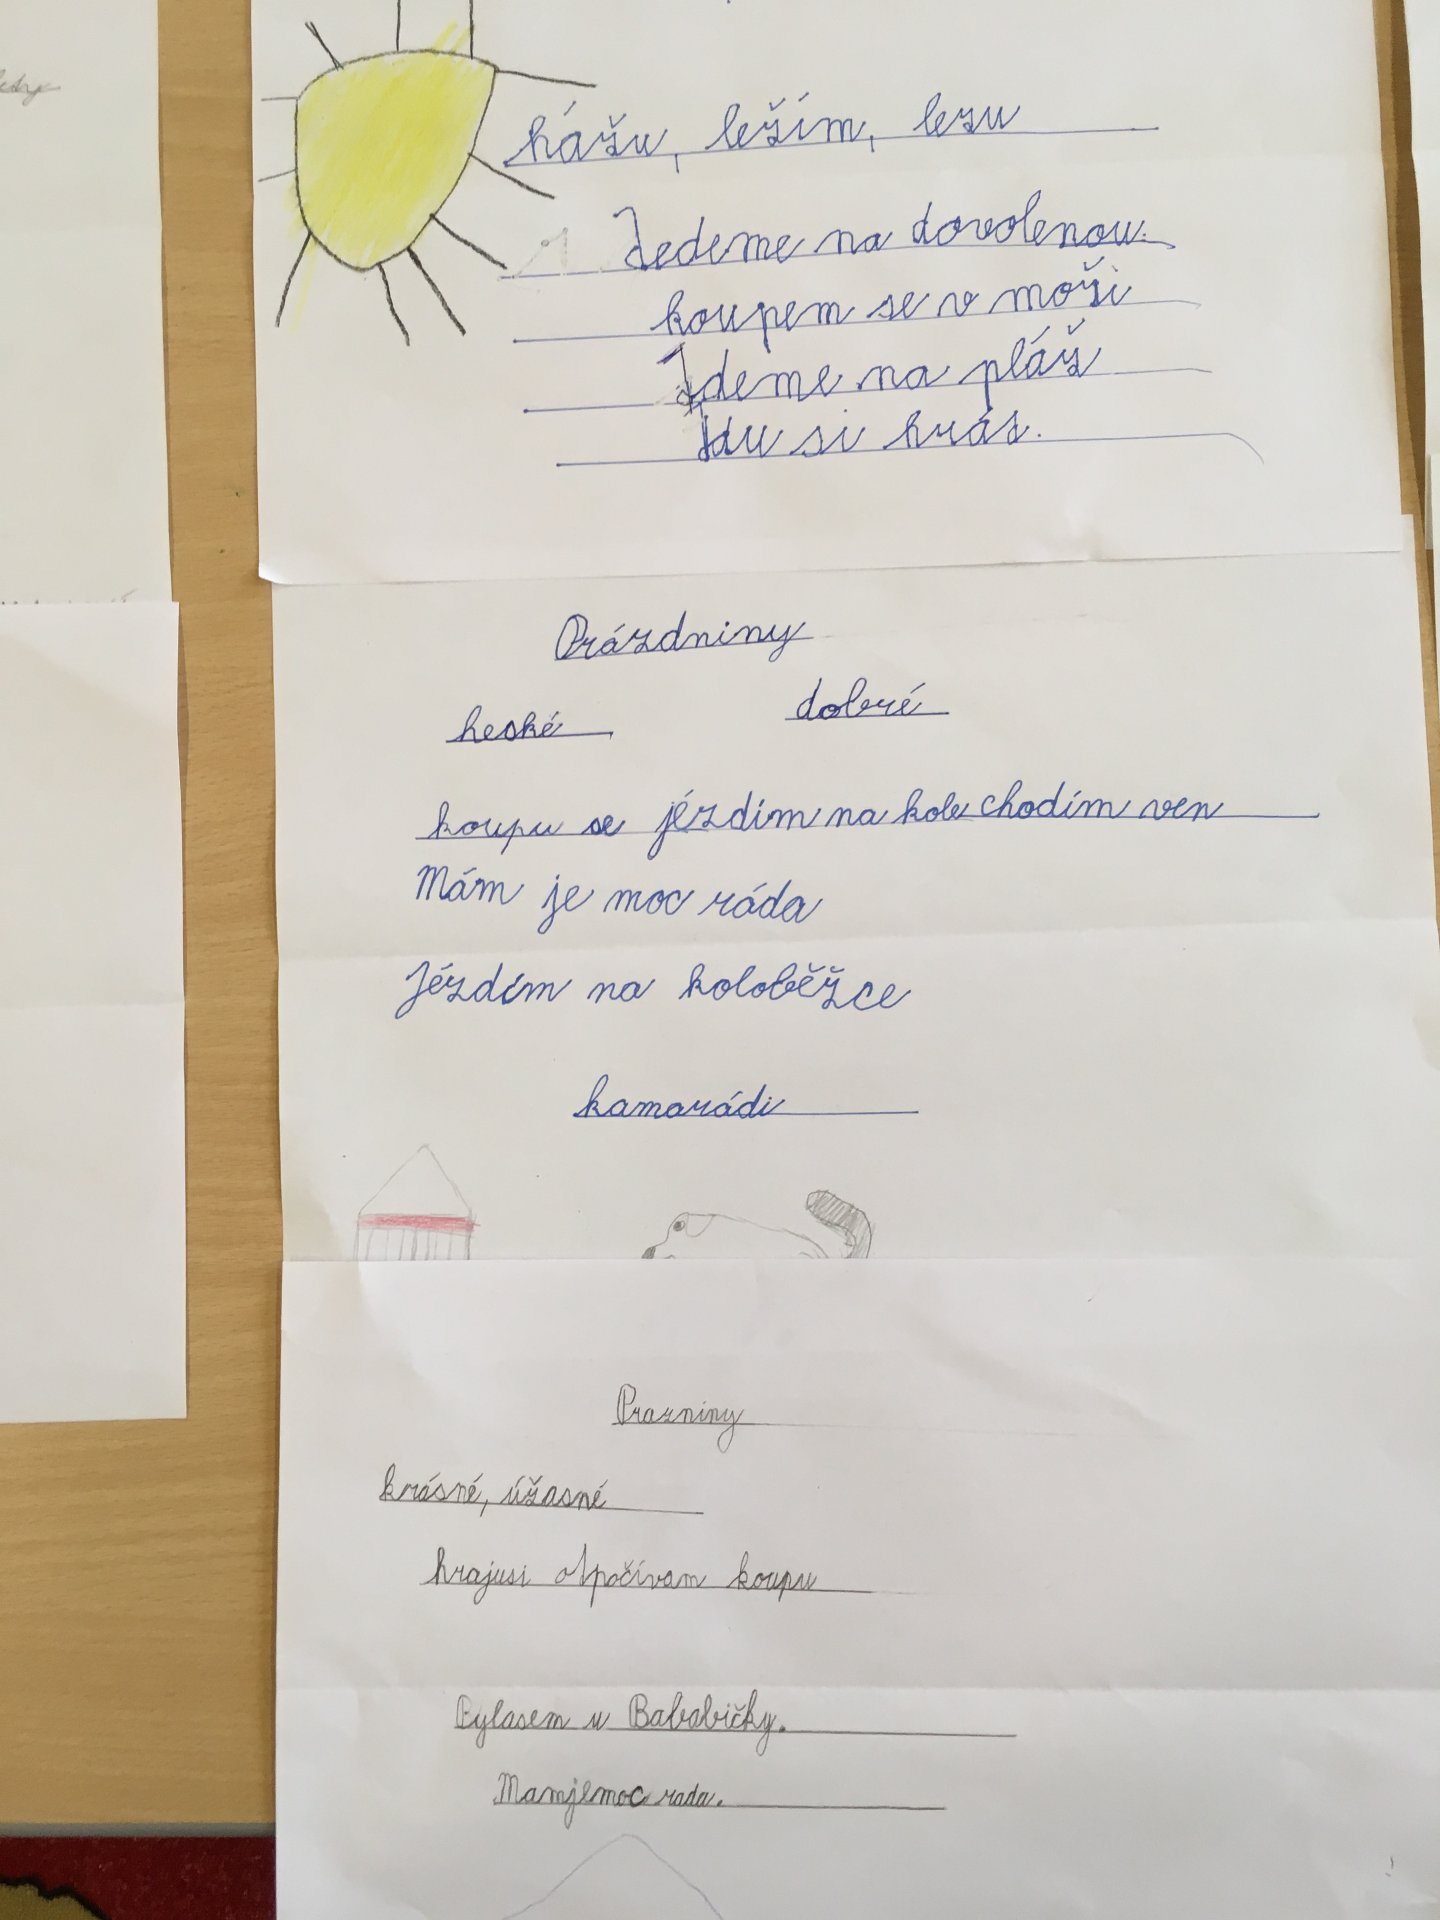 hážu, ležím, lezu
Jedeme na dovolenou.
koupem se v moři
Jdeme na pláž
Jdu si hrát.
Prázdniny
heské, dobré
koupu se jézdím na kole chodím ven
Mám je moc ráda
Jézdím na koloběžce
kamarádi
Prazniny
krásné, úžasné
hrajusi otpočívam koupu
Bylasem u Bababičky.
Mamjemoc rada.